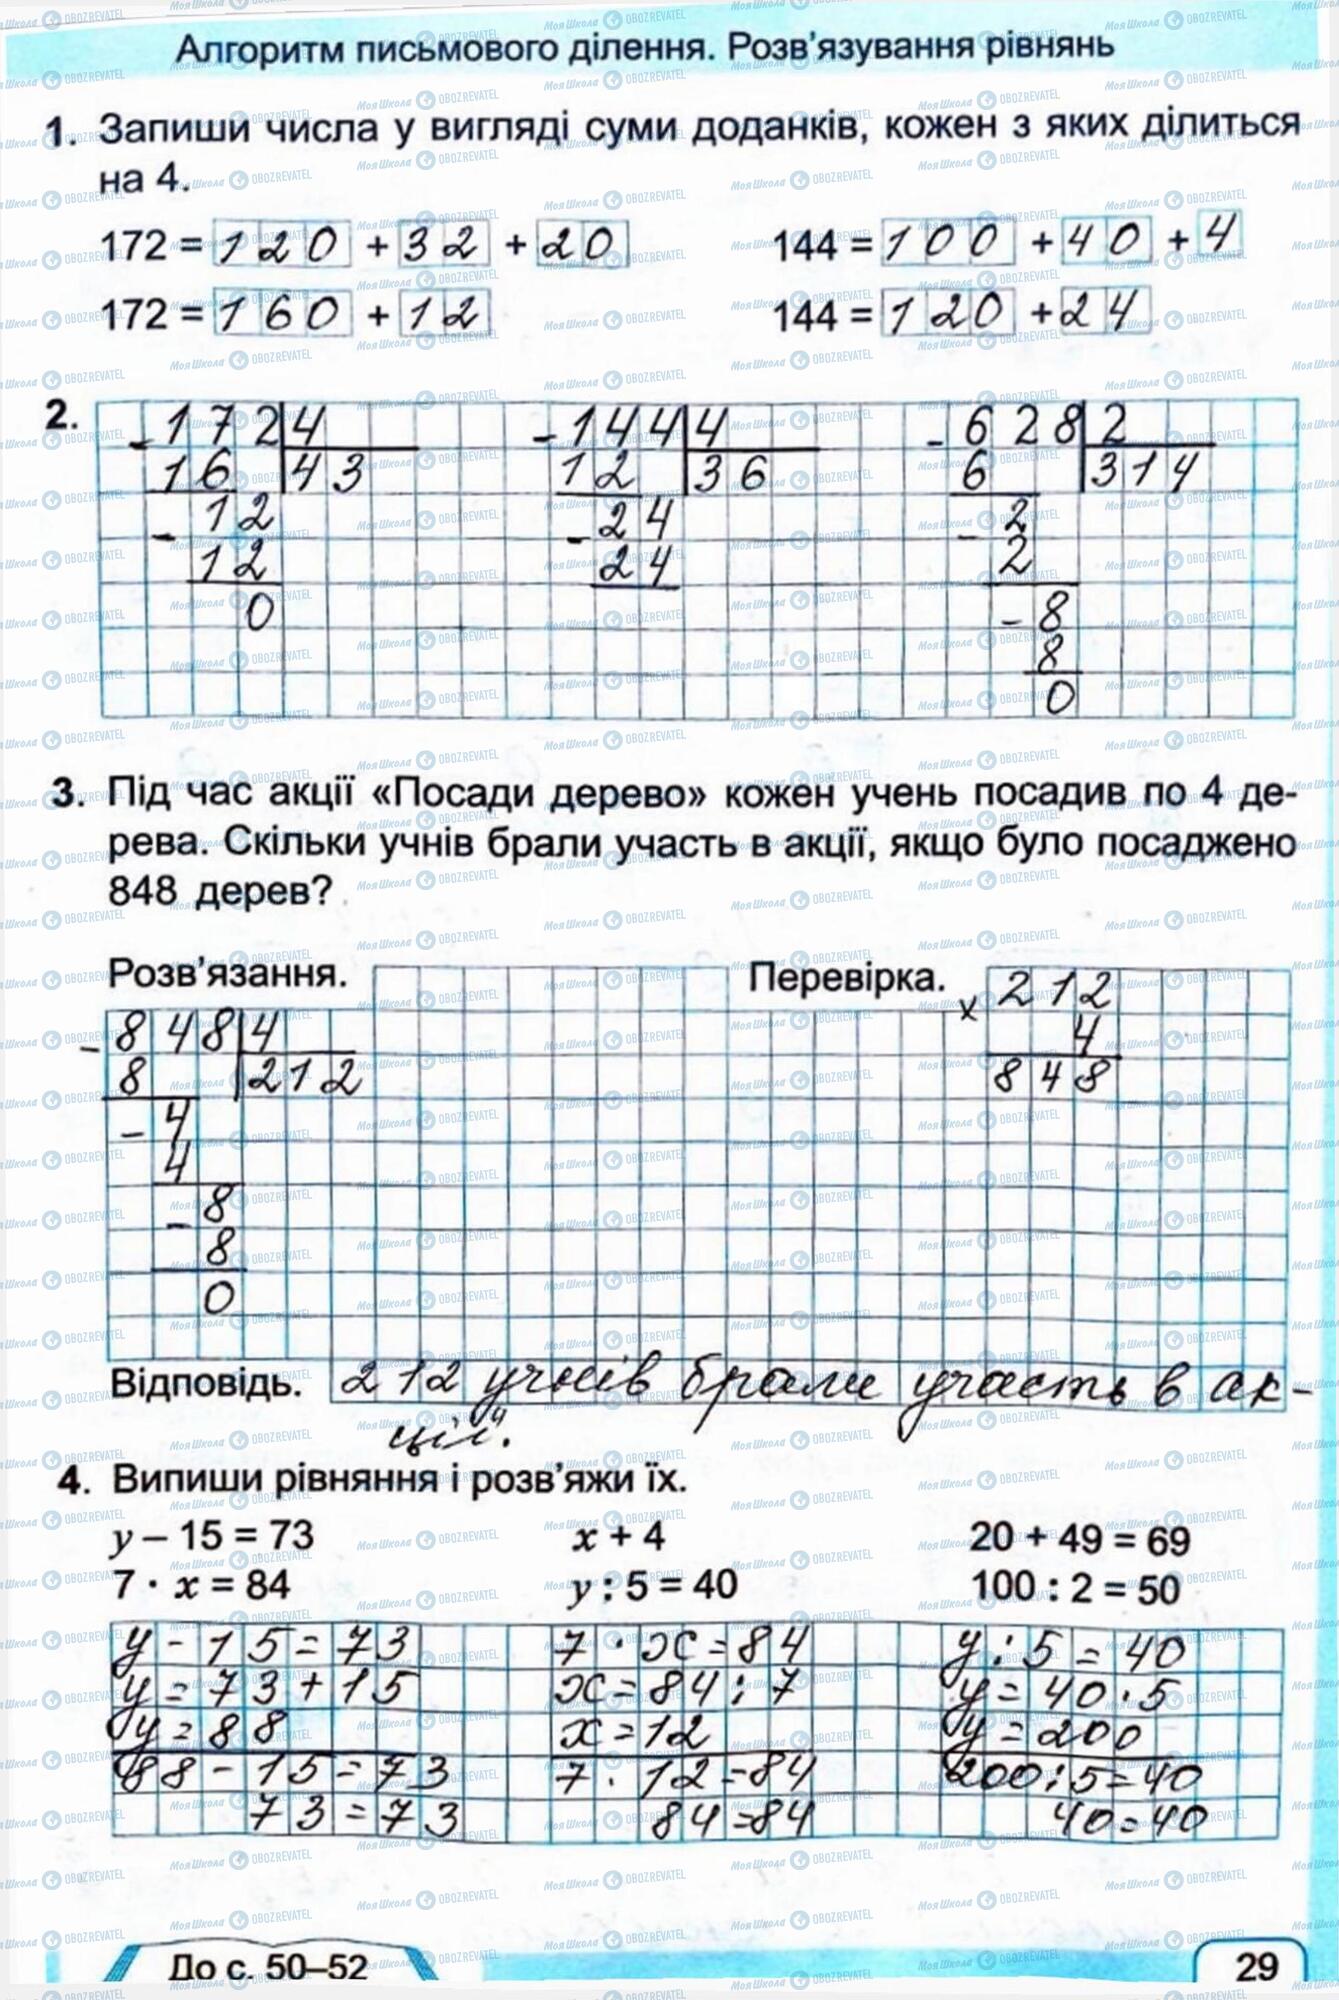 Алгоритм письмового ділення. Розв'язування рівнянь
1. Запиши числа у вигляді суми доданків, кожен з яких ділиться
на 4.
172 = 120 + 32 + 20 144 = 100 + 40 + 4
172 = 160 + 12 144 = 120 + 24
2.
- 172 4 - 144 4 - 628 2
16 43 12 36 6 314
- 12 - 24 - 2
12 24 2
0 - 8
8
0
3. Під час акції «Посади дерево» кожен учень посадив по 4 де-
рева. Скільки учнів брали участь в акції, якщо було посаджено
848 дерев?
Розв'язання. Перевірка. x 212
- 848 4 4
8 212 848
- 4
4
- 8
8
0
Відповідь. 212 учнів брали участь в ак-
ції.
4. Випиши рівняння і розв'яжи їх.
y – 15 = 73 x + 4 20 + 49 = 69
7 · x = 84 y : 5 = 40 100 : 2 = 50
y - 15 = 73 7 · x = 84 y : 5 = 40
y = 73 + 15 x = 84 : 7 y = 40 · 5
y = 88 x = 12 y = 200
88 - 15 = 73 7 · 12 = 84 200 : 5 = 40
73 = 73 84 = 84 40 = 40
До с. 50–52 29
МояШкола OBOZREVATEL